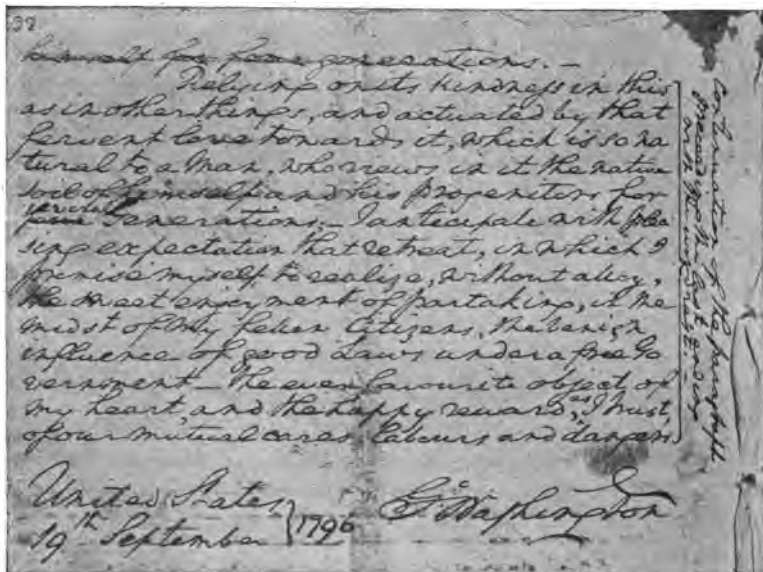 32
himself for four generations.—
Relying on its kindness in this
as in other things, and actuated by that
fervent love towards it, which is so na
tural to a Man, who views in it the native
soil of himself and his progenitors for
several
four Generations;— I anticipate with plea
sing expectation that retreat, in which I
promise myself to realize, without alloy,
the sweet enjoyment of partaking, in the
midst of my fellow Citizens, the benign
influence of good Laws under a free Go
vernment— The ever favourite object of
my heart, and the happy reward, as I trust,
of our mutual cares, labours and dangers.
continuation of the paragraph
preceeding the last ending
with the word rest.—
United States
19th September } 1796
Go Washington